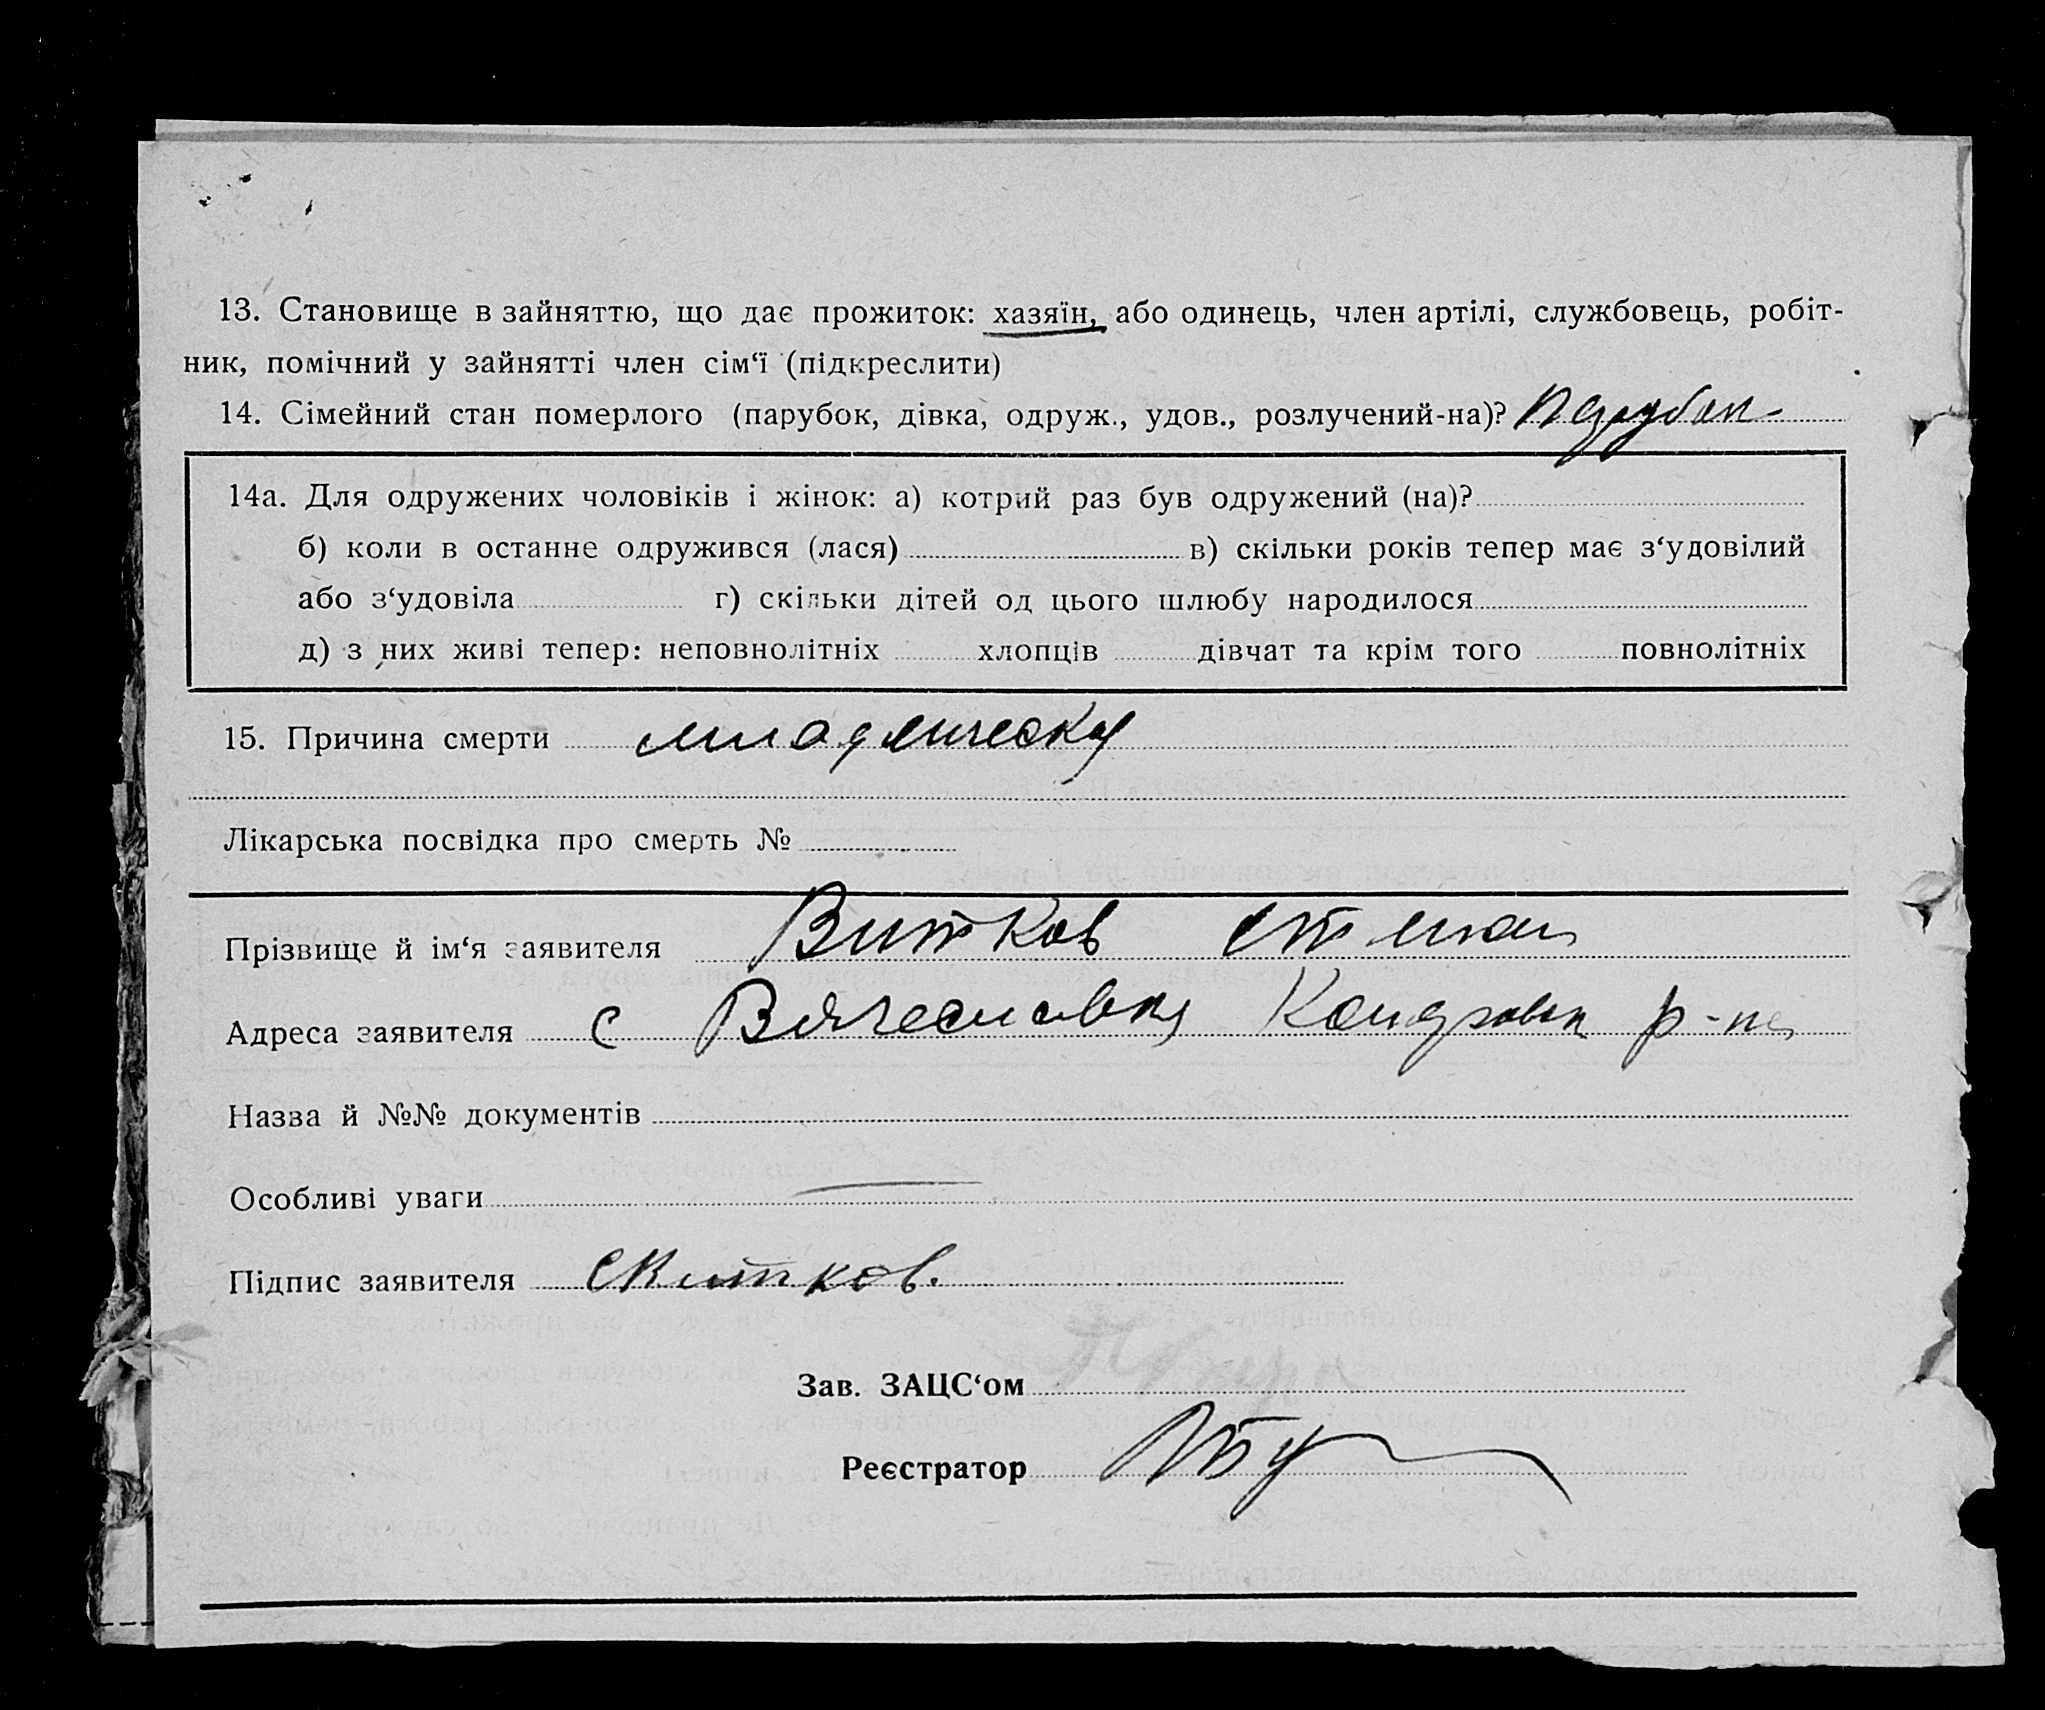 13. Становище в зайняттю, що дає прожиток: хазяїн, або одинець, член артілі, службовець, робіт-
ник, помічний у зайнятті член сім‘ї (підкреслити)
14. Сімейний стан померлого (парубок, дівка, одруж., удов., розлучений-на)? парубок
14а. Для одружених чоловіків і жінок: а) котрий раз був одружений (на)?
б) коли в останнє одружився (лася) в) скільки років тепер має з‘удовілий
або з‘удовіла г) скільки дітей од цього шлюбу народилося
д) з них живі тепер: неповнолітніх хлопців дівчат та крім того повнолітніх
15. Причина смерти младическая
Лікарська посвідка про смерть №
Прізвище й ім‘я заявителя Витков Степан
Адреса заявителя с Вячеславка р-на
Назва й №№ документів
Особливі уваги
Підпис заявителя СВитков.
Зав. ЗАЦС‘ом
Реєстратор